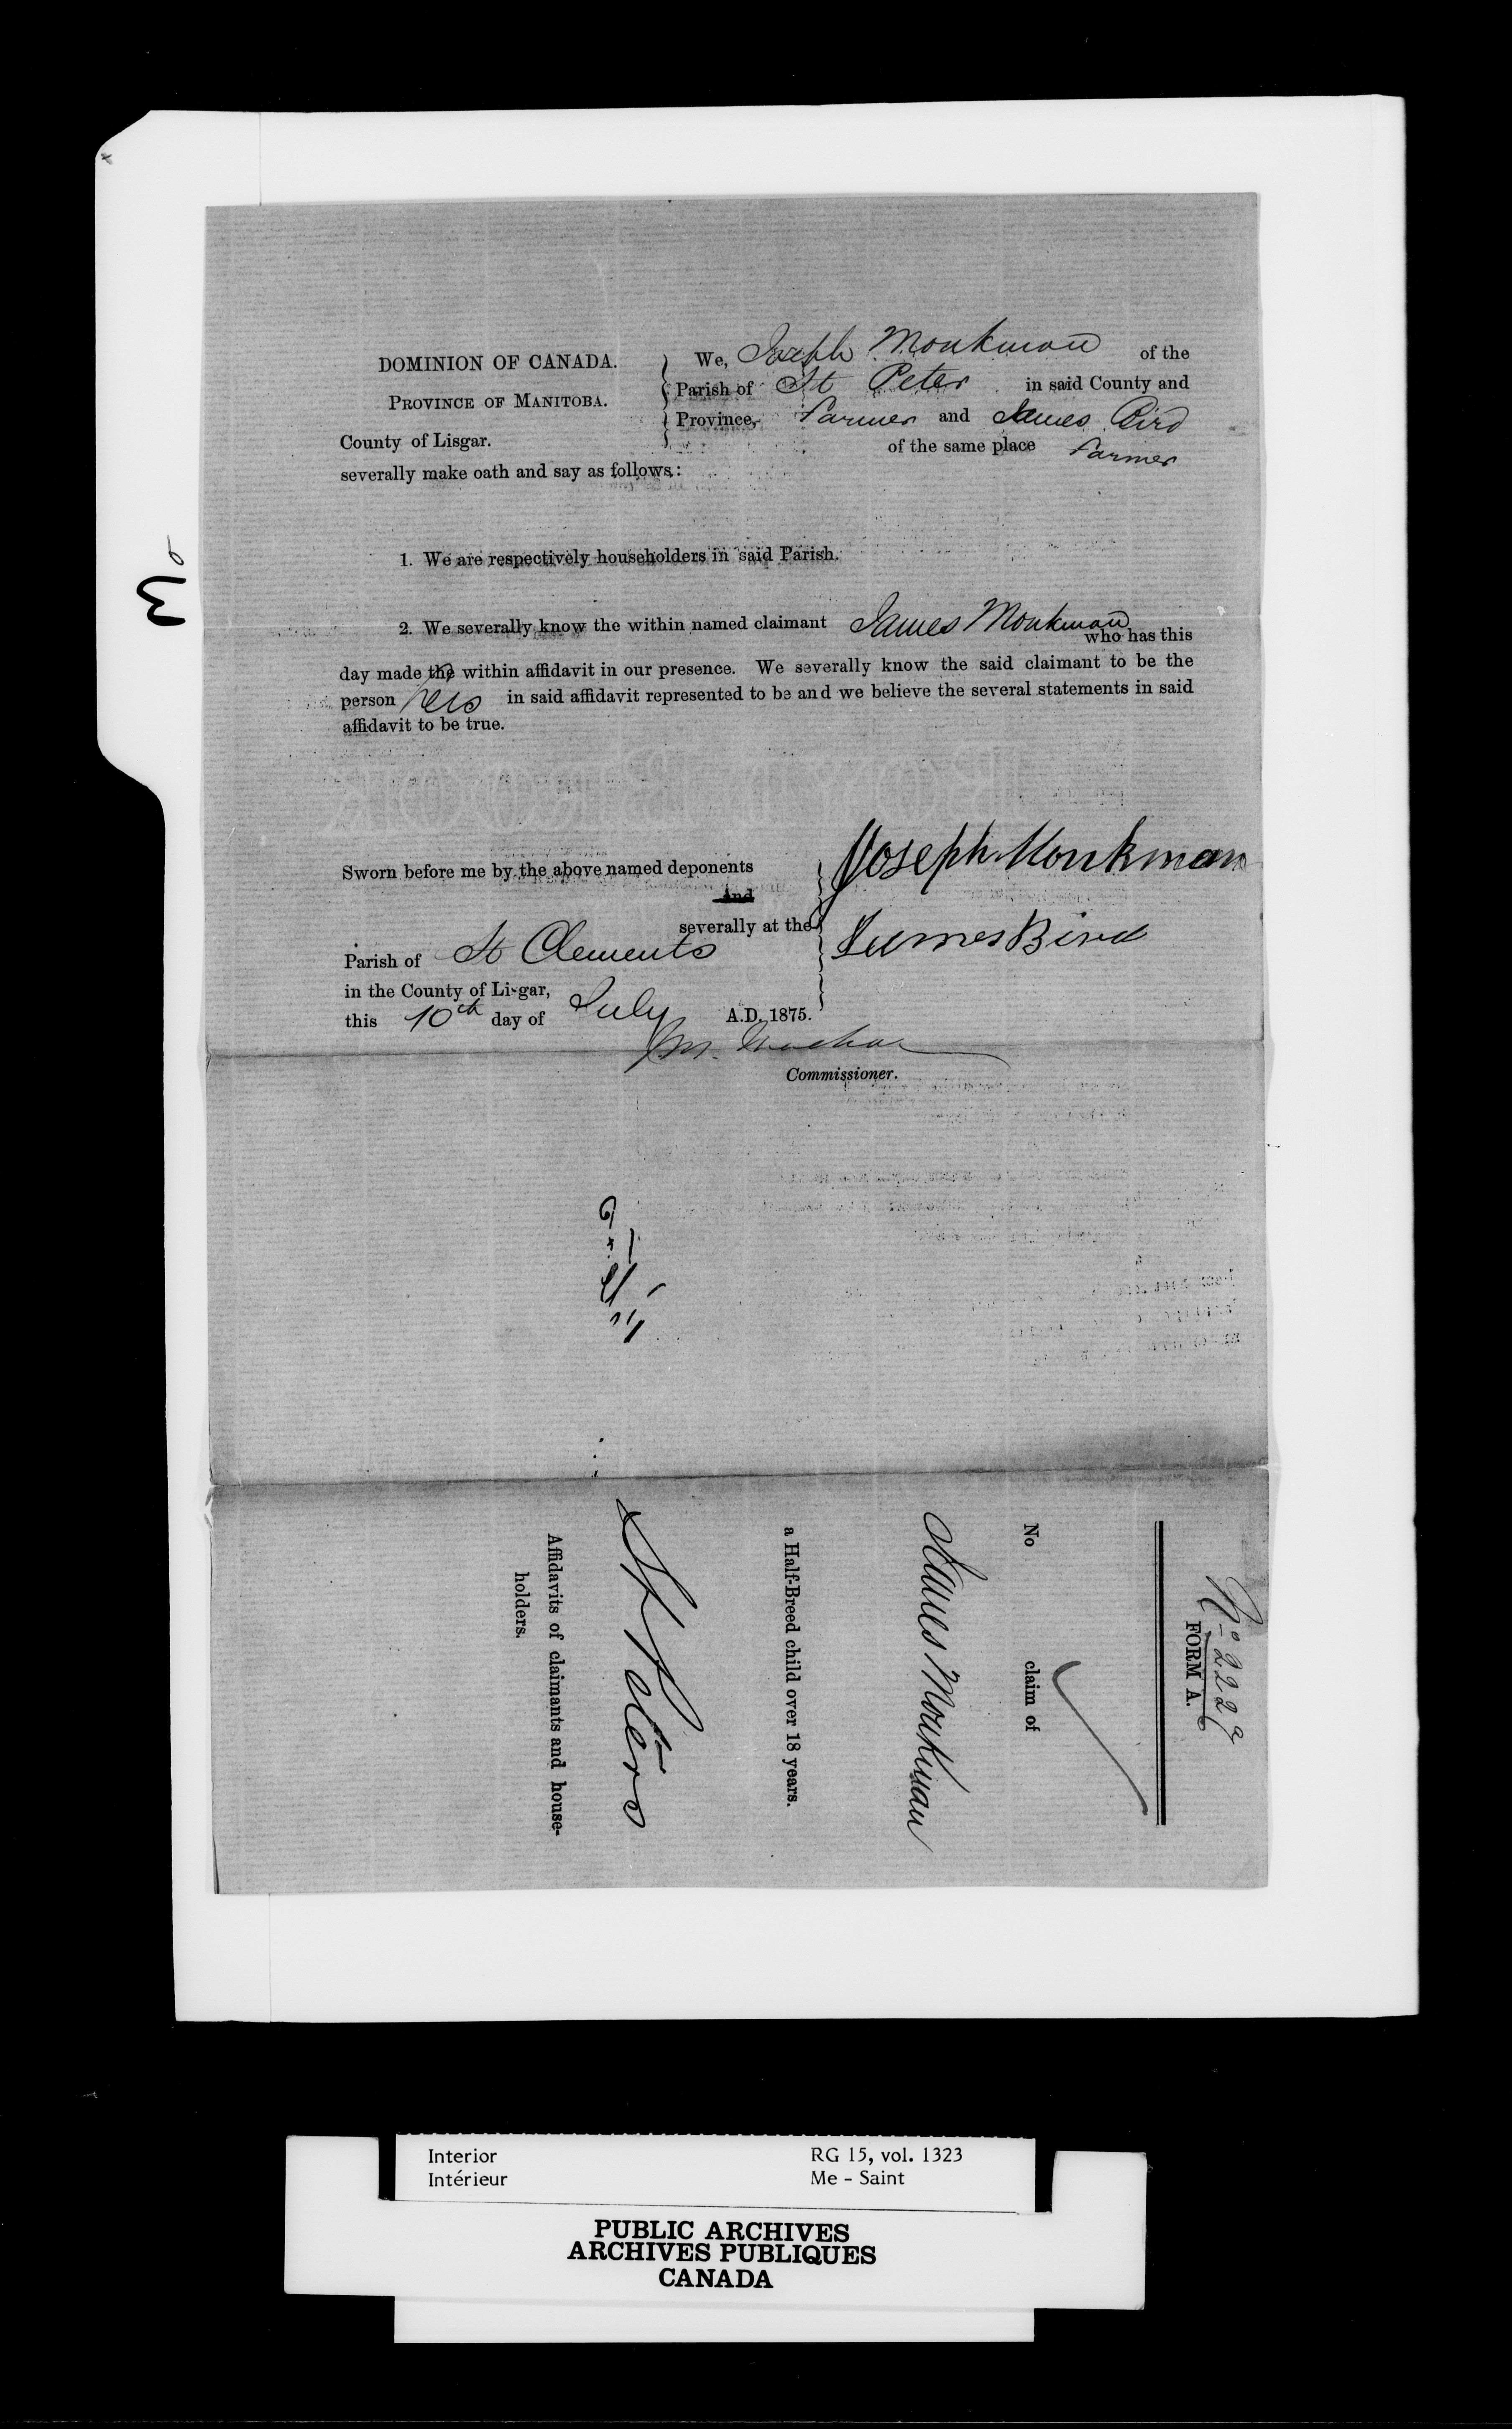 DOMINION OF CANADA.
PROVINCE OF MANITOBA.
County of Lisgar.
We, Joseph Monkman of the
Parish of St Peter in said County and
Province, Farmer and James Bird
of the same place Farmer
severally make oath and say as follows:
1. We are respectively householders in said Parish.
2. We severally know the within named claimant James Monkman
who has this
day made the within affidavit in our presence. We severally know the said claimant to be the
person he is in said affidavit represented to be and we believe the several statements in said
affidavit to be true.
Sworn before me by the above named deponents
And
severally at the
Parish of St Clements
in the County of Lisgar,
this 10th day of July A.D. 1875.
Joseph Monkman
James Bird
Commissioner.
No 2229
FORM A.
No claim of
James Monkman
a Half-Breed child over 18 years.
St Peters
Affidavits of claimants and house-
holders.
Mo
Interior
Intérieur
RG 15, vol. 1323
Me - Saint
PUBLIC ARCHIVES
ARCHIVES PUBLIQUES
CANADA